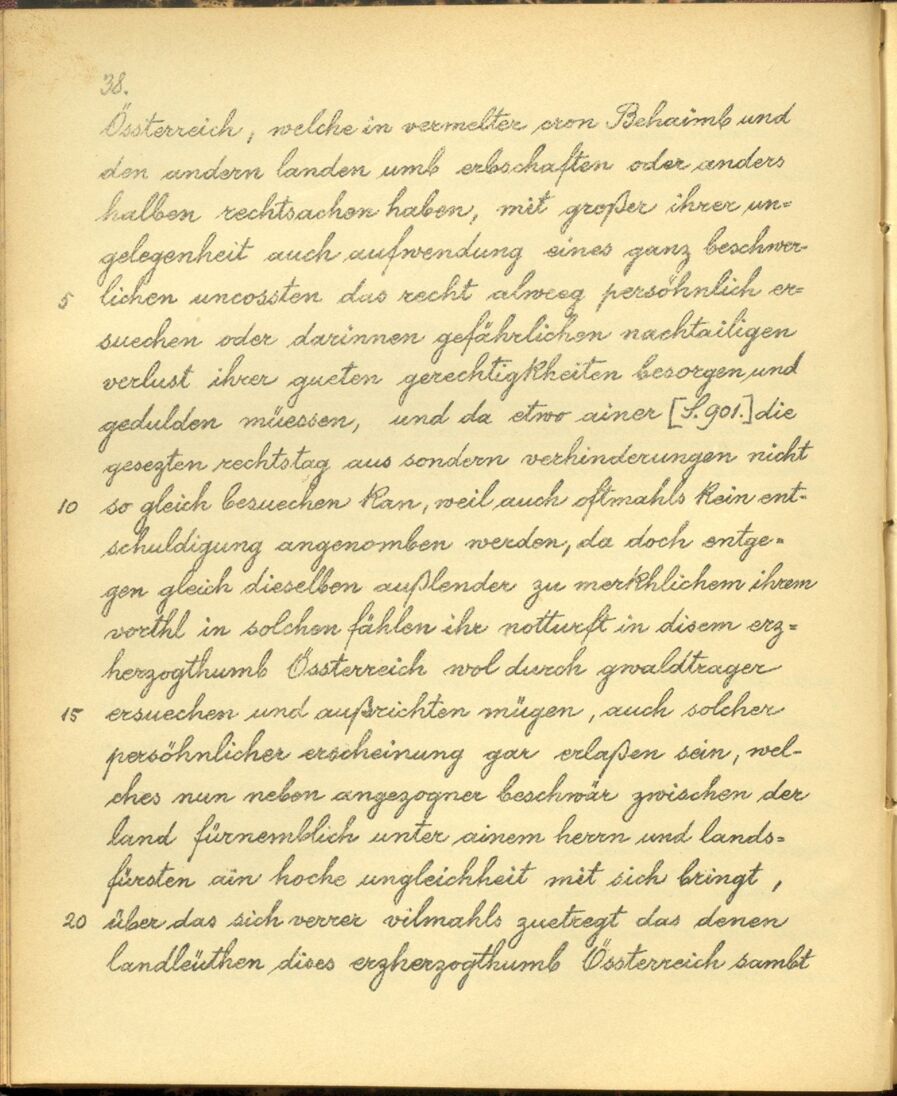 38.
Össterreich, welche in vermelter cron Behaimb und
den andern landen umb erbschaften oder anders
halben rechtsachen haben, mit großer ihrer un=
gelegenheit auch aufwendung eines ganz beschwer-
5 lichen uncossten das recht alweeg persöhnlich er=
suechen oder darinnen gefährlichen nachtailigen
verlust ihrer gueten gerechtigkheiten besorgen und
gedulden müessen, und da etwo ainer [S. 901.] die
gesezten rechtstag aus sondern verhinderungen nicht
10 so gleich besuechen kan, weil auch oftmahls kein ent-
schuldigung angenomben werden, da doch entge=
gen gleich dieselben außlender zu merkhlichem ihrem
vorthl in solchen fählen ihr notturft in disem erz=
herzogthumb Össterreich wol durch gwaldtrager
15 ersuechen und außrichten mügen, auch solcher
persöhnlicher erscheinung gar erlaßen sein, wel-
ches nun neben angezogner beschwär zwischen der
land fürnemblich unter ainem herrn und lands=
fürsten ain hoche ungleichheit mit sich bringt,
20 über das sich verrer vilmahls zuetregt das denen
landleüthen dises erzherzogthumb Össterreich sambt